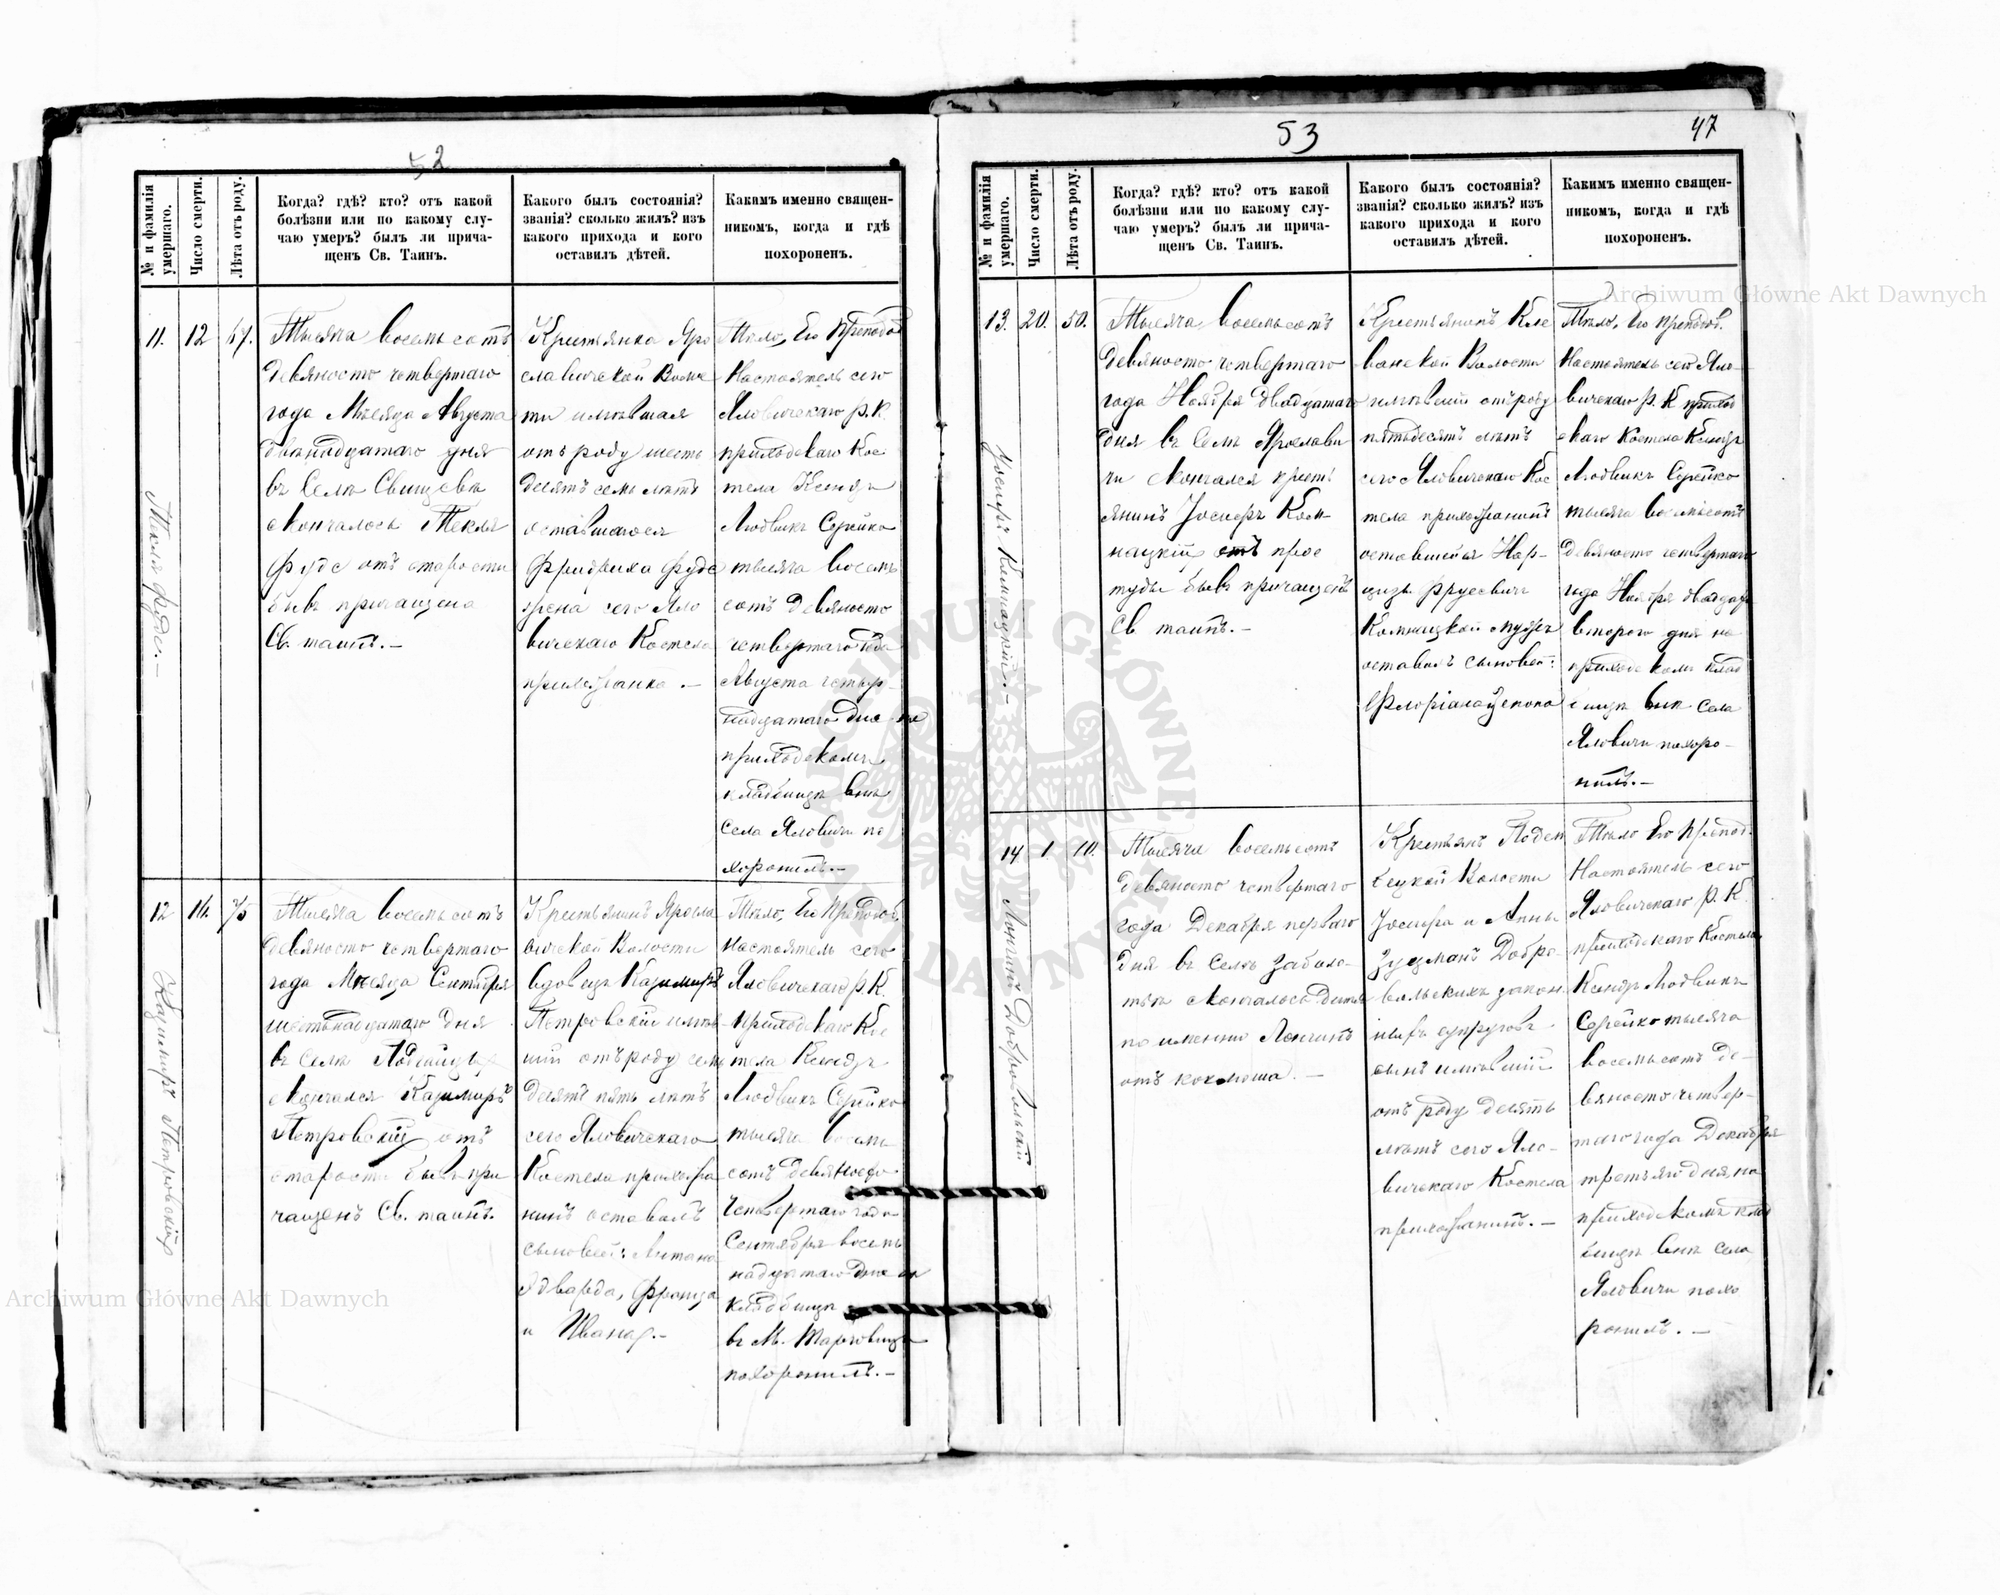 52
№ и фамилія умершаго.
Число смерти.
Лѣта отъ роду.
Когда? гдѣ? кто? отъ какой
болѣзни или по какому слу-
чаю умеръ? былъ ли прича-
щенъ Св. Таинъ.
Какого былъ состоянія?
званія? сколько жилъ? изъ
какого прихода и кого
оставилъ дѣтей.
Какимъ именно священ-
никомъ, когда и гдѣ
похороненъ.
11.
Текля Фудс.—
12
67.
Тысяча восемьсотъ
девяносто четвертаго
года Мѣсяца Августа
двѣнадцатаго дня
въ Селѣ Свищевѣ
скончалось Текля
Фудс отъ старости
бывъ причащена
Св. таинъ.—
Крестьянка Яро
славичской Волос
ти имѣвшая
отъ роду шесть
десятъ семь лѣтъ
оставшагося
Фридриха Фудс
жена сего Яло
вичскаго Костела
прихожанка.—
Тѣло, Его Преподоб
Настоятель сего
Яловичскаго Р. К.
приходскаго Кос
тела Ксендзъ
Людвикъ Серейко
тысяча восемь
сотъ девяносто
четвертаго года
Августа четыр-
надцатаго дня на
приходскомъ
кладбищѣ внѣ
села Яловичи по
хоронилъ.—
12
Казимиръ Петровскій
16.
75
Тысяча восемьсотъ
девяносто четвертаго
года Мѣсяца Сентября
шестьнадцатаго дня
въ селѣ
скончался Казимиръ
Петровскій отъ
старости бывъ при
чащенъ Св. таинъ.
Крестьянинъ Яросла
вичской Волости
вдовецъ Казимиръ
Петровскій имѣв
шій отъ роду семь
десятъ пять лѣтъ
сего Яловичскаго
Костела прихожа
нинъ оставилъ
сыновей: Антона
Эдварда, Франца
и Ивана.—
Тѣло, Его Преподоб.
Настоятель сего
Яловичскаго Р. К.
приходскаго Кос
тела Ксендзъ
Людвикъ Серейко
тысяча восемь
сотъ девяносто
четвертаго года
Сентября восемь
надцатаго дня на
кладбищѣ
въ М. Торговицѣ
похоронилъ.—
53
47
№ и фамилія умершаго.
Число смерти.
Лѣта отъ роду.
Когда? гдѣ? кто? отъ какой
болѣзни или по какому слу-
чаю умеръ? былъ ли прича-
щенъ Св. Таинъ.
Какого былъ состоянія?
званія? сколько жилъ? изъ
какого прихода и кого
оставилъ дѣтей.
Какимъ именно священ-
никомъ, когда и гдѣ
похороненъ.
13.
Іосифъ Комнацкій.—
20.
50.
Тысяча восемьсотъ
девяносто четвертаго
года Ноября двадцатаго
дня въ Селѣ Ярослави
чи скончался кресть
янинъ Іосифъ Ком-
нацкій отъ прос
туды бывъ причащенъ
Св. таинъ.—
Крестьянинъ Кле
ванской Волости
имѣвшій отъ роду
пятьдесятъ лѣтъ
сего Яловичскаго Кос
тела прихожанинъ
оставшейся
Комнацкой мужъ
оставилъ сыновей:
Флоріана
Тѣло, Его Преподоб.
Настоятель сего Яло-
вичскаго Р. К. приход
скаго Костела Ксендзъ
Людвикъ Серейко
тысяча восемьсотъ
девяносто четвертаго
года Ноября двадцать
второго дня на
приходскомъ клад
бищѣ внѣ села
Яловичи похоро-
нилъ.—
14
Лонгинъ Добровольскій
1.
10.
Тысяча восемьсотъ
девяносто четвертаго
года Декабря перваго
дня въ селѣ Заболо-
тьѣ скончалось дитя
по имени Лонгинъ
отъ коклюша.—
Крестьянъ
Волости
Іосифа и Анны
Добро-
вольскихъ закон
ныхъ супруговъ
сынъ имѣвшій
отъ роду десять
лѣтъ сего Яло-
вичскаго Костела
прихожанинъ.—
Тѣло Его Препод.
Настоятель сего
Яловичскаго Р. К.
приходскаго Костела
Ксендзъ Людвикъ
Серейко тысяча
восемьсотъ де-
вяносто четвер-
таго года Декабря
третьяго дня, на
приходскомъ клад
бищѣ внѣ села
Яловичи похо
ронилъ.—
Archiwum Główne Akt Dawnych
Archiwum Główne Akt Dawnych
ARCHIWUM GŁÓWNE AKT DAWNYCH